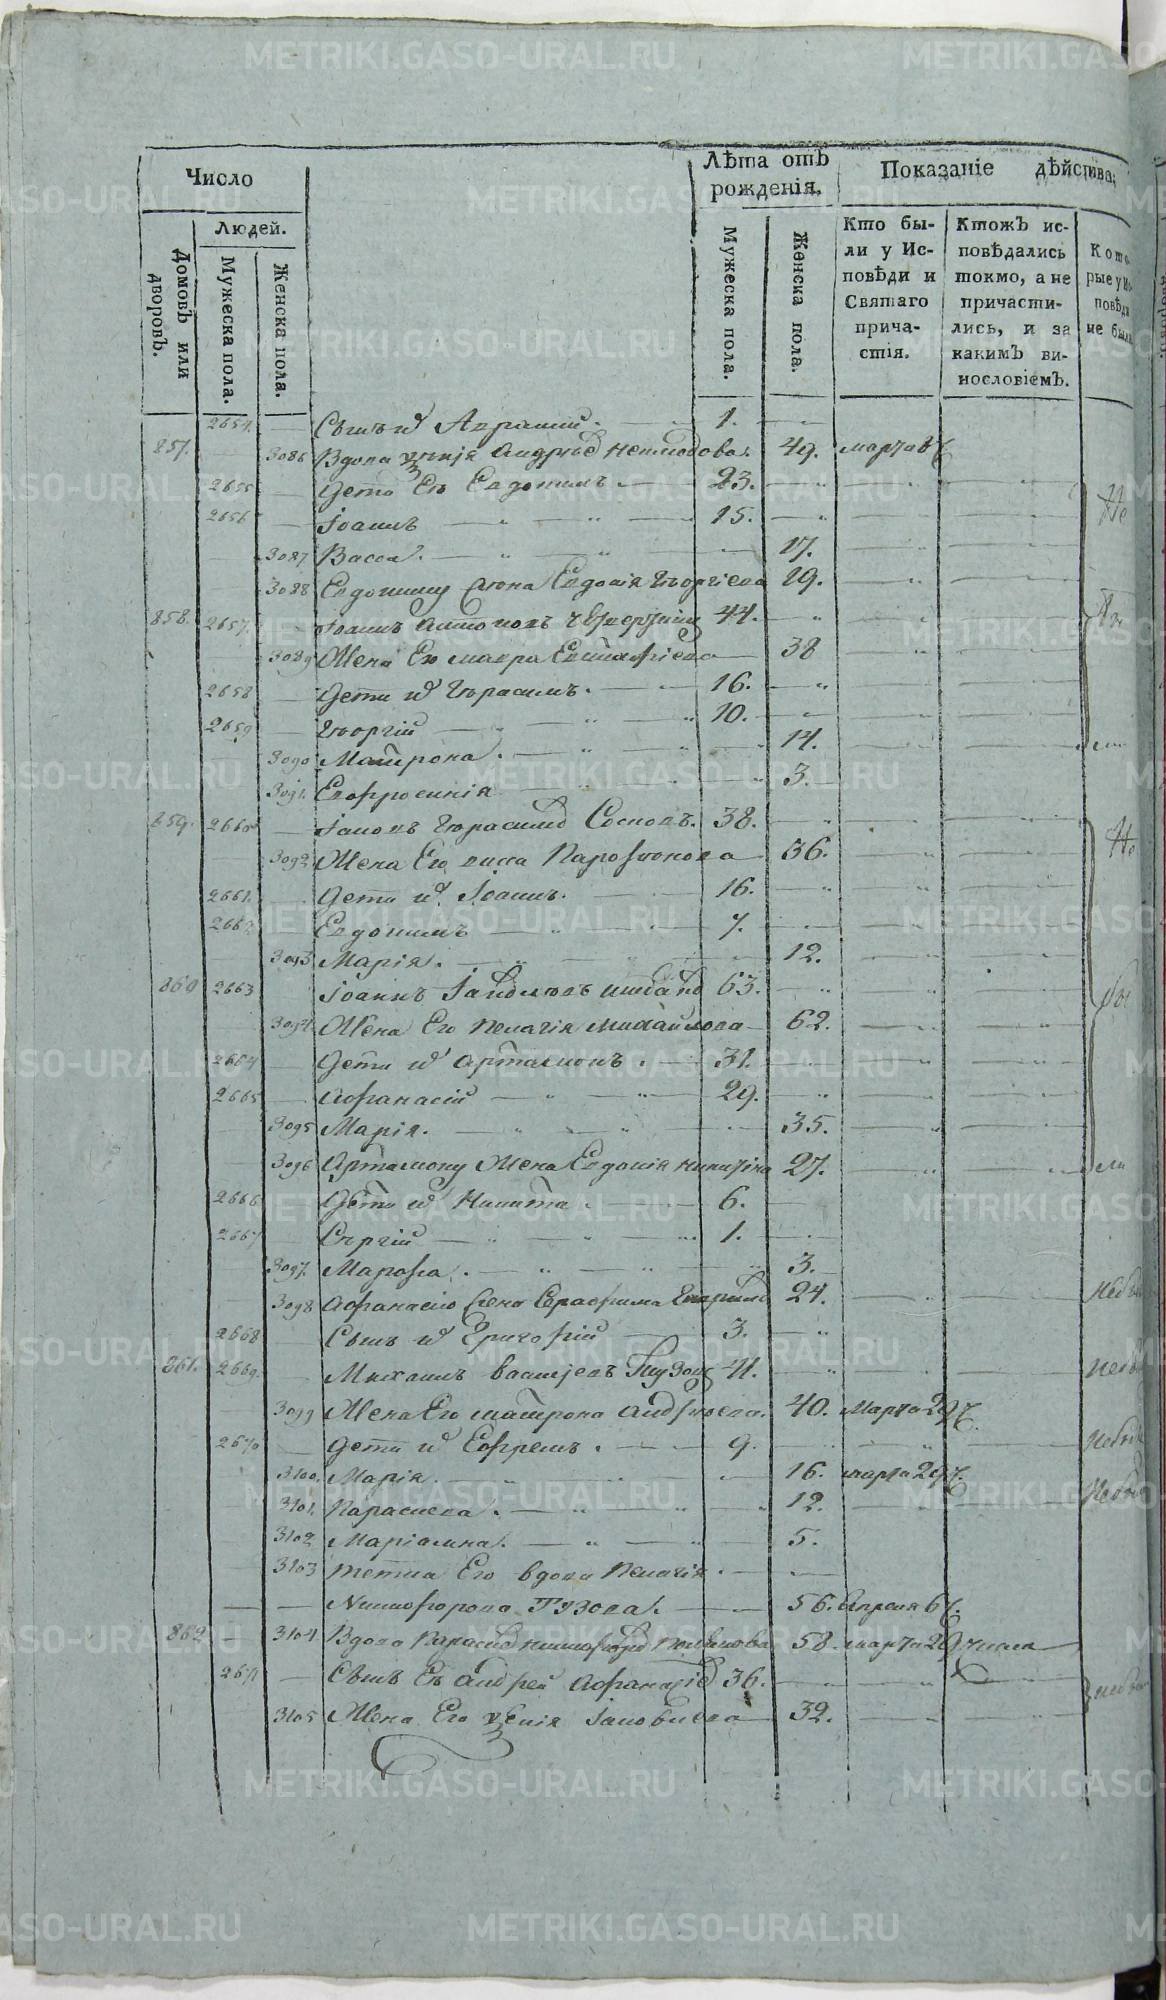 METRIKI.GASO-URAL.RU
Число
Лѣта отъ рожденія.
Показаніе дѣйства,
Людей.
Домовъ или дворовъ.
Мужеска пола.
Женска пола.
Мужеска пола.
Женска пола.
Кто бы-
ли у Ис-
повѣди и
Святаго
прича-
стія.
Ктожъ ис-
повѣдались
токмо, а не
причасти-
лись, и за
какимъ ви-
нословіемъ.
Кото-
рые у Ис-
повѣди
не были
2654. Сынъ их Авраамий. 1.
857. 3086 Вдова Андрѣева 49. марта
2655 Дети Ея Евдокимъ 23.
2656 Іоаннъ 15.
3087 Васса. 17.
3088 Евдокиму жена Евдокія Георгіева 19.
858. 2657. Іоаннъ Антоновъ 44.
3089 Жена Его мавра Евстафіева 38
2658 Дети их Герасимъ. 16.
2659 Георгій 10.
3090 Матрона. 14.
3091. Евфросинія 3.
859. 2660 Іаковъ Герасимов Сосновъ. 38.
3092 Жена Его анна Парфенова 36.
2661. Дети их Іоаннъ. 16.
2662 Евдокимъ 7.
3093 Марія. 12.
860 2663 Іоаннъ 63.
3094. Жена Его Пелагія михайлова 62.
2664 Дети их Артамонъ. 31.
2665 Афанасій 29.
3095 Марія. 35.
3096 Артамону Жена Евдокія никитина 27.
2666 Дети их Никита. 6.
2667 Сергій 1.
3097. Марфа. 3.
3098 Афанасію жена Серафима 24. Небы
2668 Сынъ их Григорій 3.
861. 2669. Михаилъ васильевъ 41. Небы
3099 Жена Его матрона андреева. 40. Марта 29
2670 Дети их Ефремъ. 9. Небы
3100. Марія. 16. марта 29
3101. Параскева. 12. Небы
3102 Маріамна. 5.
3103 тетка Его вдова Пелагія.
Никифорова Гузова. 56. Апреля 6
862 3104 Вдова 58. марта 29
2671 Сынъ Ея Андрей Афанасіев 36.
3105 Жена Его Іаковлева 32.